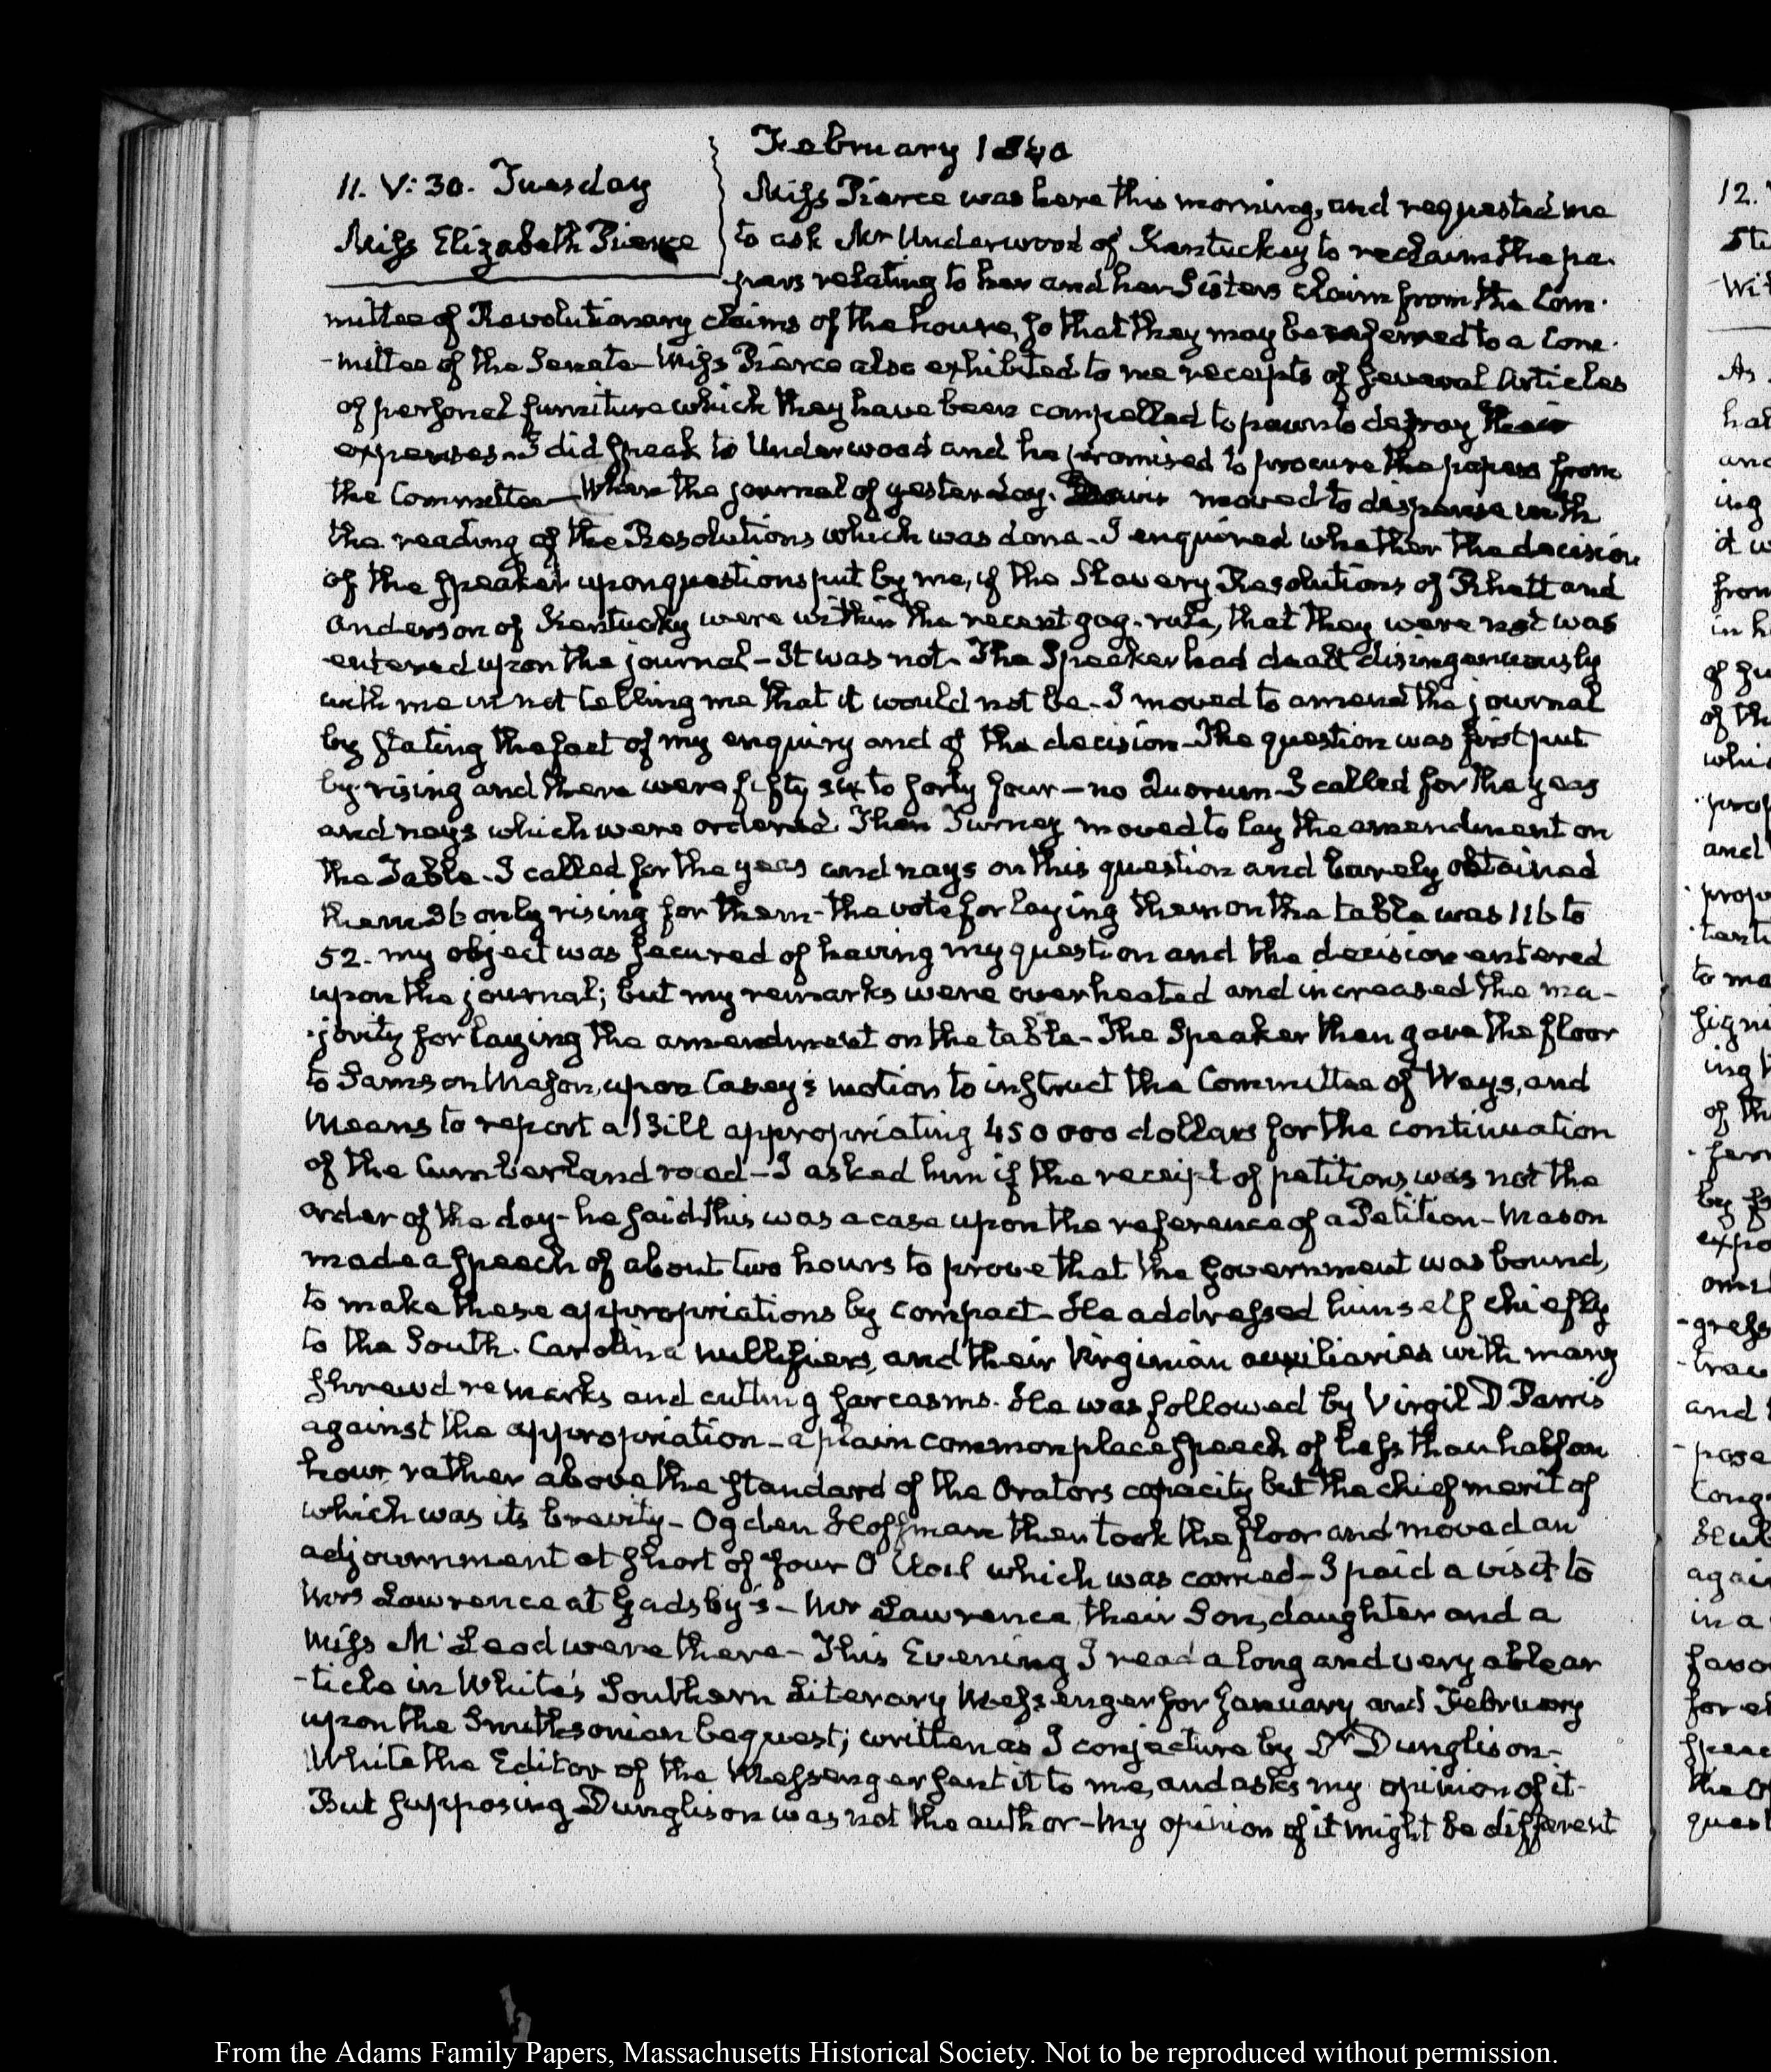 February 1840
11. V:30. Tuesday
Miss Elizabeth Pierce
Miss Pierce was here this morning, and requested me
to ask Mr Underwood of Kentucky to reclaim the pa-
pers relating to her and her Sisters claim from the Com-
mittee of Revolutionary claims of the house, so that they may be referred to a Com-
-mittee of the Senate- Miss Pierce also exhibited to me receipts of several Articles
of personal furniture which they have been compelled to pawn to defray their
expenses- I did speak to Underwood and he promised to procure the papers from
the Committee- When the journal of yesterday. moved to dispense with
the reading of the Resolutions which was done- I enquired whether the decision
of the Speaker upon questions put by me, if the Slavery Resolutions of Rhett and
Anderson of Kentucky were within the recent gag-rule, that they were not was
entered upon the journal- It was not- The Speaker had dealt disingenuously
with me in not telling me that it would not be- I moved to amend the journal
by stating the fact of my enquiry and of the decision- The question was first put
by rising and there were fifty six to forty four- no Quorum- I called for the yeas
and nays which were ordered. Then Turney moved to lay the amendment on
the Table- I called for the yeas and nays on this question and barely obtained
them 26 only rising for them- the vote for laying them on the table was 116 to
52. my object was secured of having my question and the decision entered
upon the journal; but my remarks were overheated and increased the ma-
-jority for laying the amendment on the table- The Speaker then gave the floor
to Samson Mason, upon Casey's motion to instruct the Committee of Ways, and
Means to report a Bill appropriating 450 000 dollars for the continuation
of the Cumberland road- I asked him if the receipt of petitions was not the
order of the day- he said this was a case upon the reference of a Petition- Mason
made a speech of about two hours to prove that the Government was bound,
to make these appropriations by compact- He addressed himself chiefly
to the South-Carolina nullifiers, and their Virginian auxiliaries with many
shrewd remarks and cutting sarcasms. He was followed by Virgil D Parris
against the appropriation- a plain commonplace speech of less than half an
hour, rather above the standard of the Orators capacity but the chief merit of
which was its brevity- Ogden Hoffman then took the floor and moved an
adjournment at short of four O'Clock which was carried- I paid a visit to
Mrs Lawrence at Gadsby's- Mr Lawrence, their Son, daughter and a
Miss McLeod were there- This Evening I read a long and very able ar
-ticle in White's Southern Literary Messenger for January and February
upon the Smithsonian bequest; written as I conjecture by Dr Dunglison-
White the Editor of the Messenger sent it to me, and asks my opinion of it-
But supposing Dunglison was not the author- my opinion of it might be different
From the Adams Family Papers, Massachusetts Historical Society. Not to be reproduced without permission.